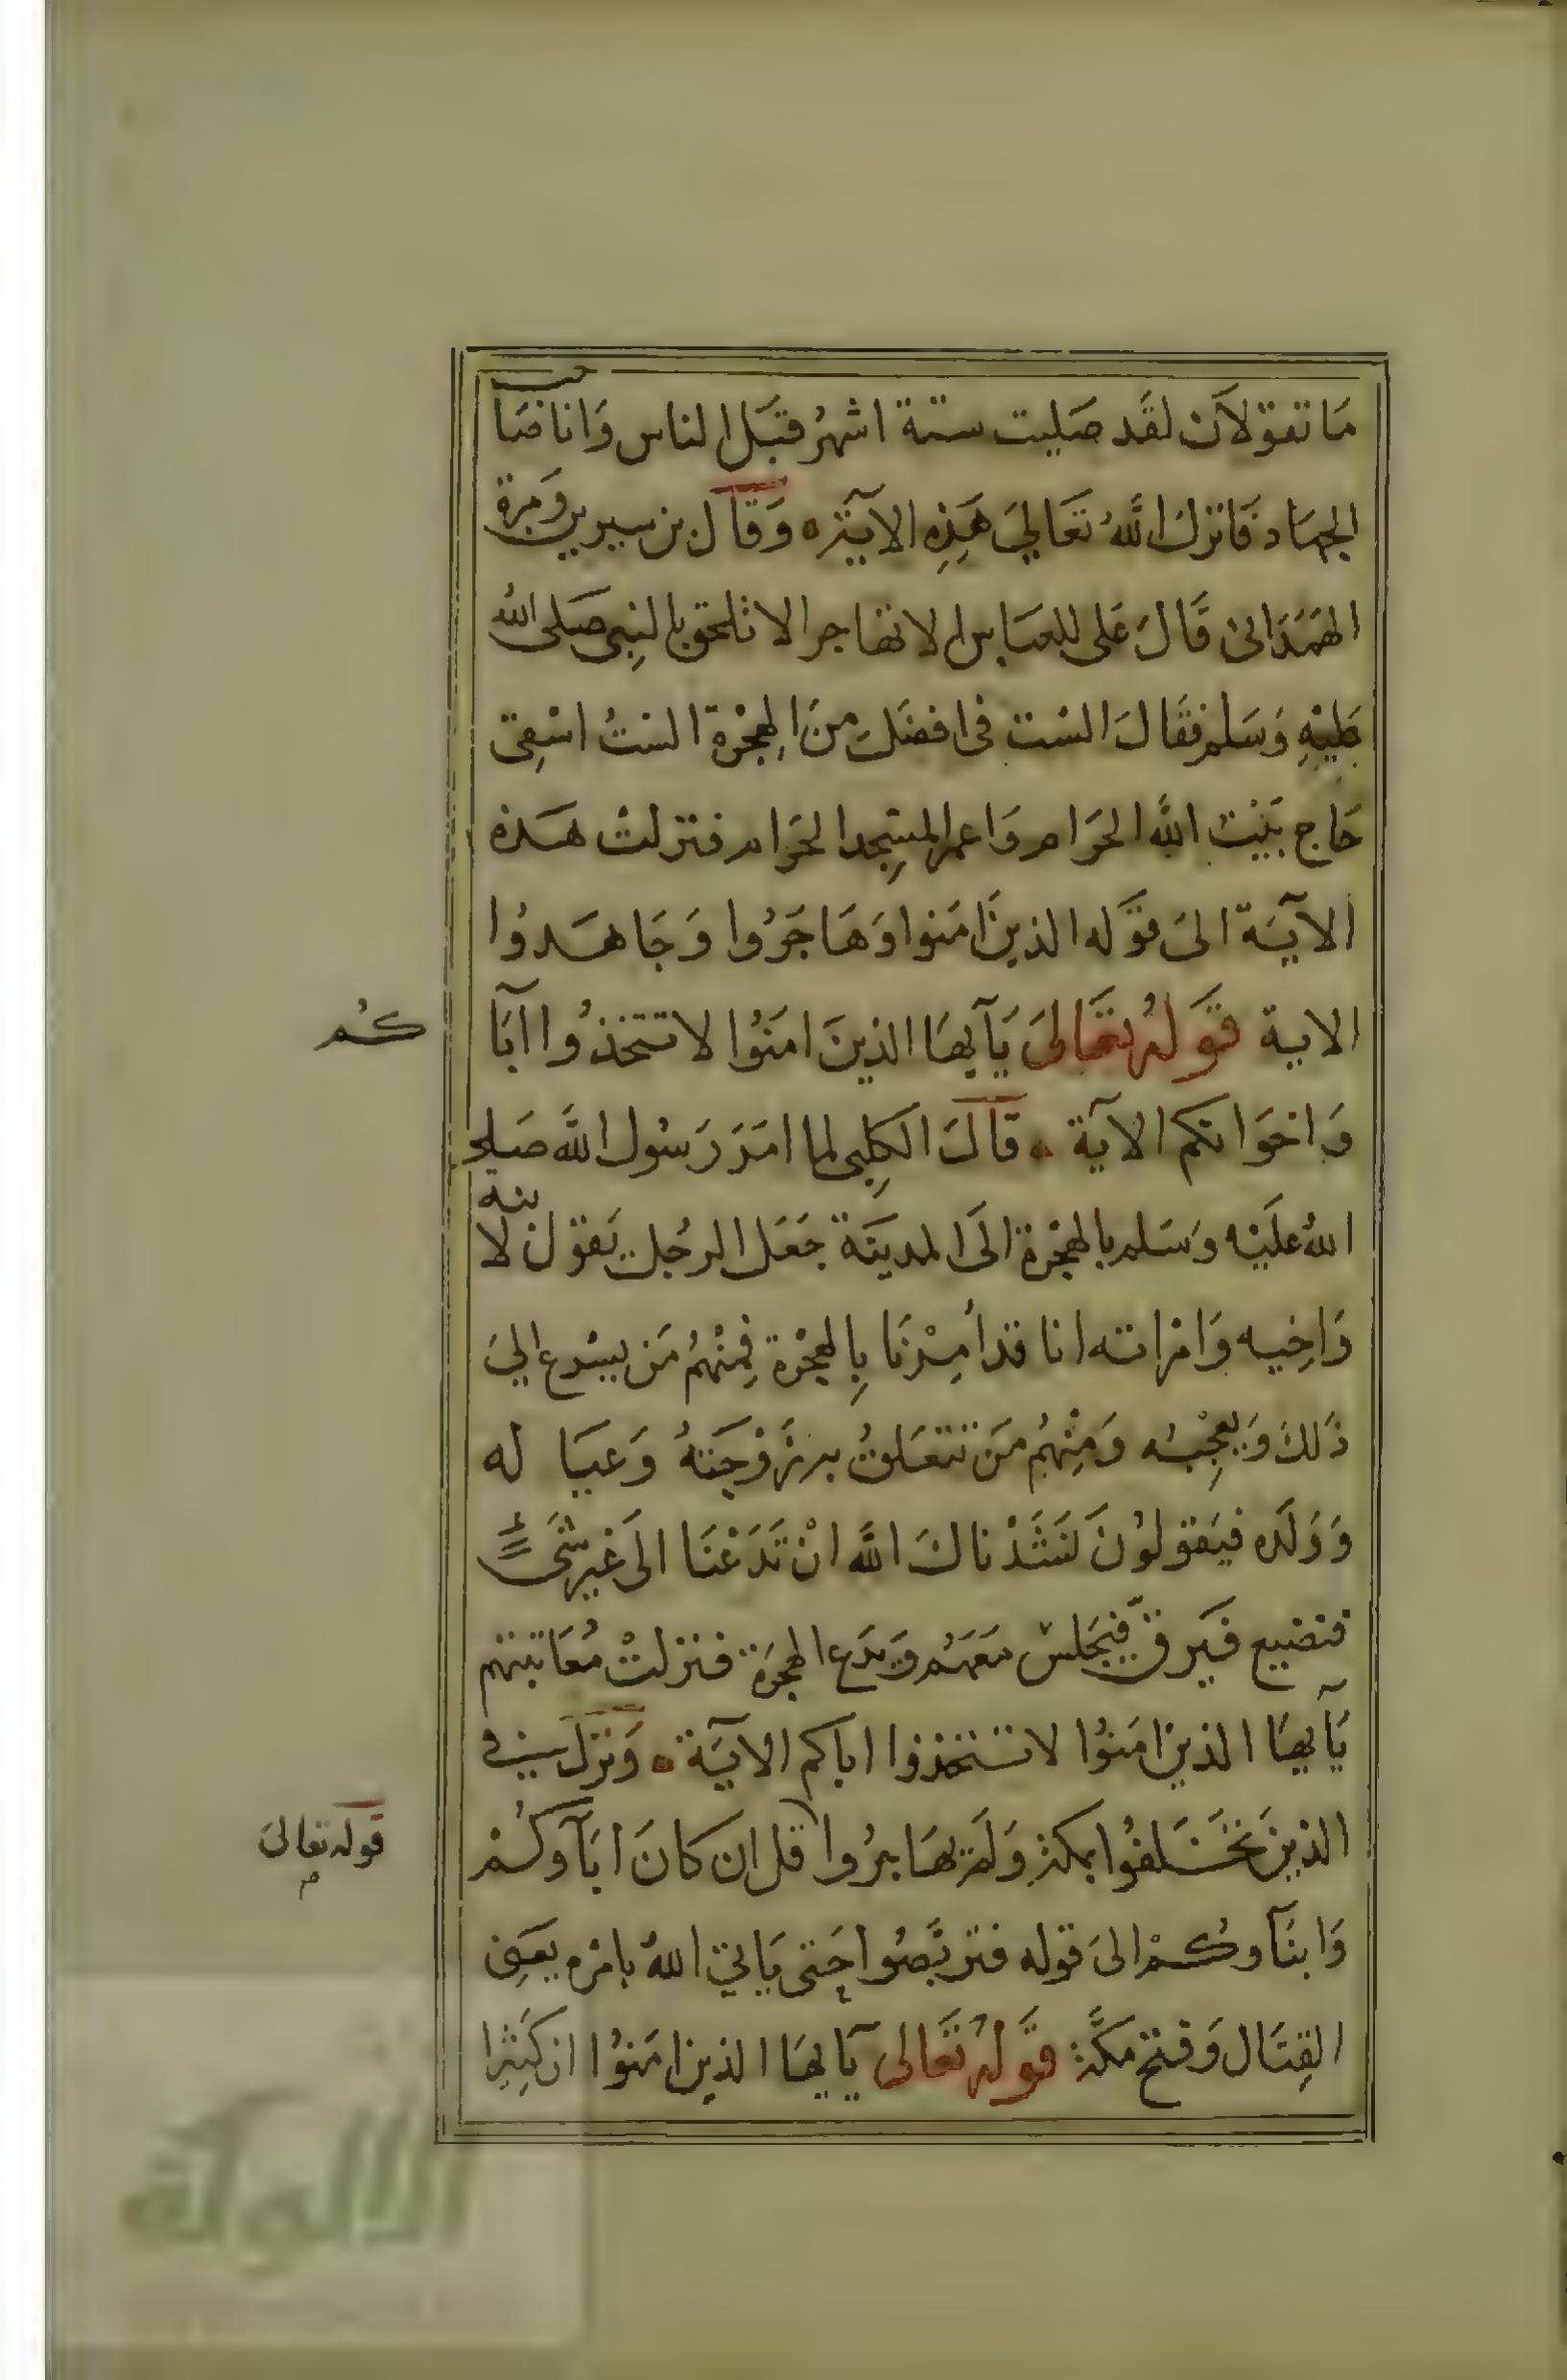 مَا تقوْلاَن لقَد صَليت ستة اشهرُ قبَل الناس وَانا صَاحب
الجهَاد فَانزل اللَّهُ تعَالىَ هَذِهِ الايَة وَقَال بن سيرين وَمرة
الهمَدَانى قَالَ عَلى للعبَاس الا تهَاجر الا تلحق بالنِبى صَلى الله
عَليْهِ وَسَلم فقَالَ الست فى افضَل مِنَ الهِجْرة السْتُ اسْقِى
حَاج بَيْت اللَّه الحَرَام وَاعمر المسِجد الحَرَام فنزلتْ هَذه
الآيَة الىَ قوَله الذينَ امَنوا وَهَاجَرُوا وَجَاهَدوُا
الاية قوَلهُ تعَالىَ يَآ يهَا الذينَ امَنوُا لا تتخذوُا ابَا
كُم
وَاخوَانكم الآية قاَلَ الكلِبى لما امَرَ رَسُول اللَّه صَلى
اللهُ علَيْه وَسَلم بالهجْرة الىَ المدينَة جَعَل الرجُل يَقول لابنه
وَاخِيه وَامْراته انا قد أمِرْنَا بِالهجْرة فمِنْهُمْ مَن يسْرع الىَ
ذَلكَ وَيعجِبُه وَمِنْهُم مَن تتعَلقُ به زَوْجَتهُ وَعيَا له
وَوَلَده فيَقولوُنَ نَشَدْناكَ اللَّه انْ تَدَعْنَا الىَ غَير شَىءٍ
فنضيع فيَرق فيَجَلسْ معَهَم وَيدَع الهجرَة فنزلتْ مُعَاتبتهم
يَآ يهَا الذين امَنوُا لا تتخذوا اباكم الايَة وَنزل فى
الذينَ تخَلفوُا بمكة وَلَم يهَا جرُوا قل ان كانَ ابَآوكُمْ
قوله تعالىَ
وَابنَآوكُمْ الىَ قوله فتربَّصُوا حَتى يَاتىَ اللهُ بامْره يعَنِى
القِتَال وَفتح مَكَّة قوَلهُ تعَالى يَآ يهَا الذين امَنوُا ان كَثِيرا
الألوكة